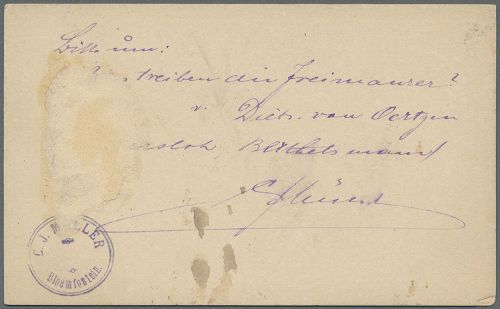 Bitte um:
treiben die Freimaurer?
v. Dietr. von Oertzen
ersloh, Bertelsmann
C. J. M LLER
Bloemfontein.